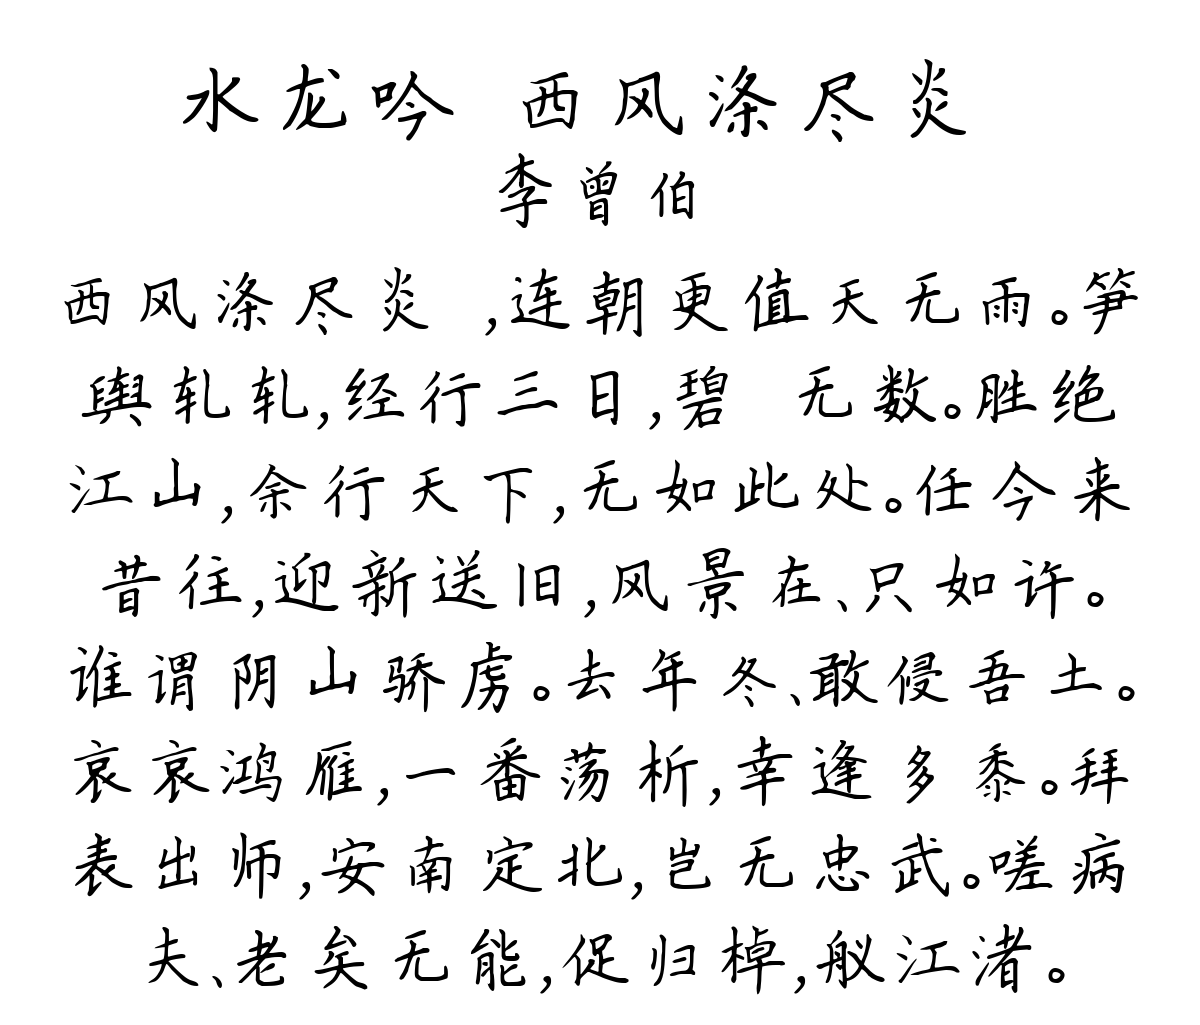 水龙吟 西风涤尽炎
李曾伯
西风涤尽炎 ,连朝更值天无雨。笋
舆轧轧,经行三日,碧 无数。胜绝
江山,余行天下,无如此处。任今来
昔往,迎新送旧,风景在、只如许。
谁谓阴山骄虏。去年冬、敢侵吾土。
哀哀鸿雁,一番荡析,幸逢多黍。拜
表出师,安南定北,岂无忠武。嗟病
夫、老矣无能,促归棹,舣江渚。